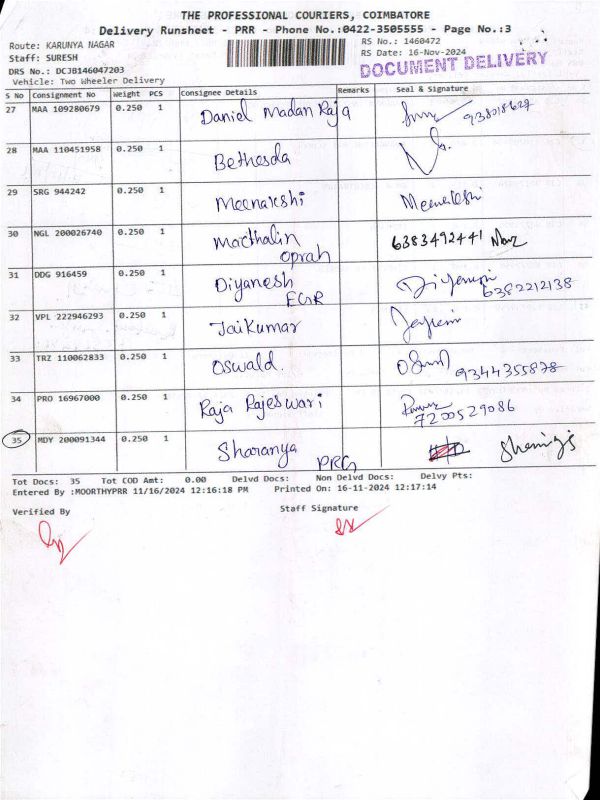 THE PROFESSIONAL COURIERS, COIMBATORE
Delivery Runsheet - PRR - Phone No.:0422-3505555 - Page No.:3
Route: KARUNYA NAGAR RS No.: 1460472
Staff: SURESH RS Date: 16-Nov-2024
DRS No.: DCJB146047203 DOCUMENT DELIVERY
Vehicle: Two Wheeler Delivery
S No Consignment No Weight PCS Consignee Details Remarks Seal & Signature
27 MAA 109280679 0.250 1 Daniel Madan Raja
28 MAA 110451958 0.250 1 Bethesda
29 SRG 944242 0.250 1 Meenakshi Meenakshi
30 NGL 200026740 0.250 1 Marthalin 6383492441
Oprah
31 DDG 916459 0.250 1 Diyanesh
EGR 6382212138
32 VPL 222946293 0.250 1 Jaikumar
33 TRZ 110062833 0.250 1 Oswald. 9344355878
34 PRO 16967000 0.250 1 Raja Rajeswari
7200529086
35 MDY 200091344 0.250 1 Sharanya
PRG
Tot Docs: 35 Tot COD Amt: 0.00 Delvd Docs: Non Delvd Docs: Delvy Pts:
Entered By :MOORTHYPRR 11/16/2024 12:16:18 PM Printed On: 16-11-2024 12:17:14
Verified By Staff Signature